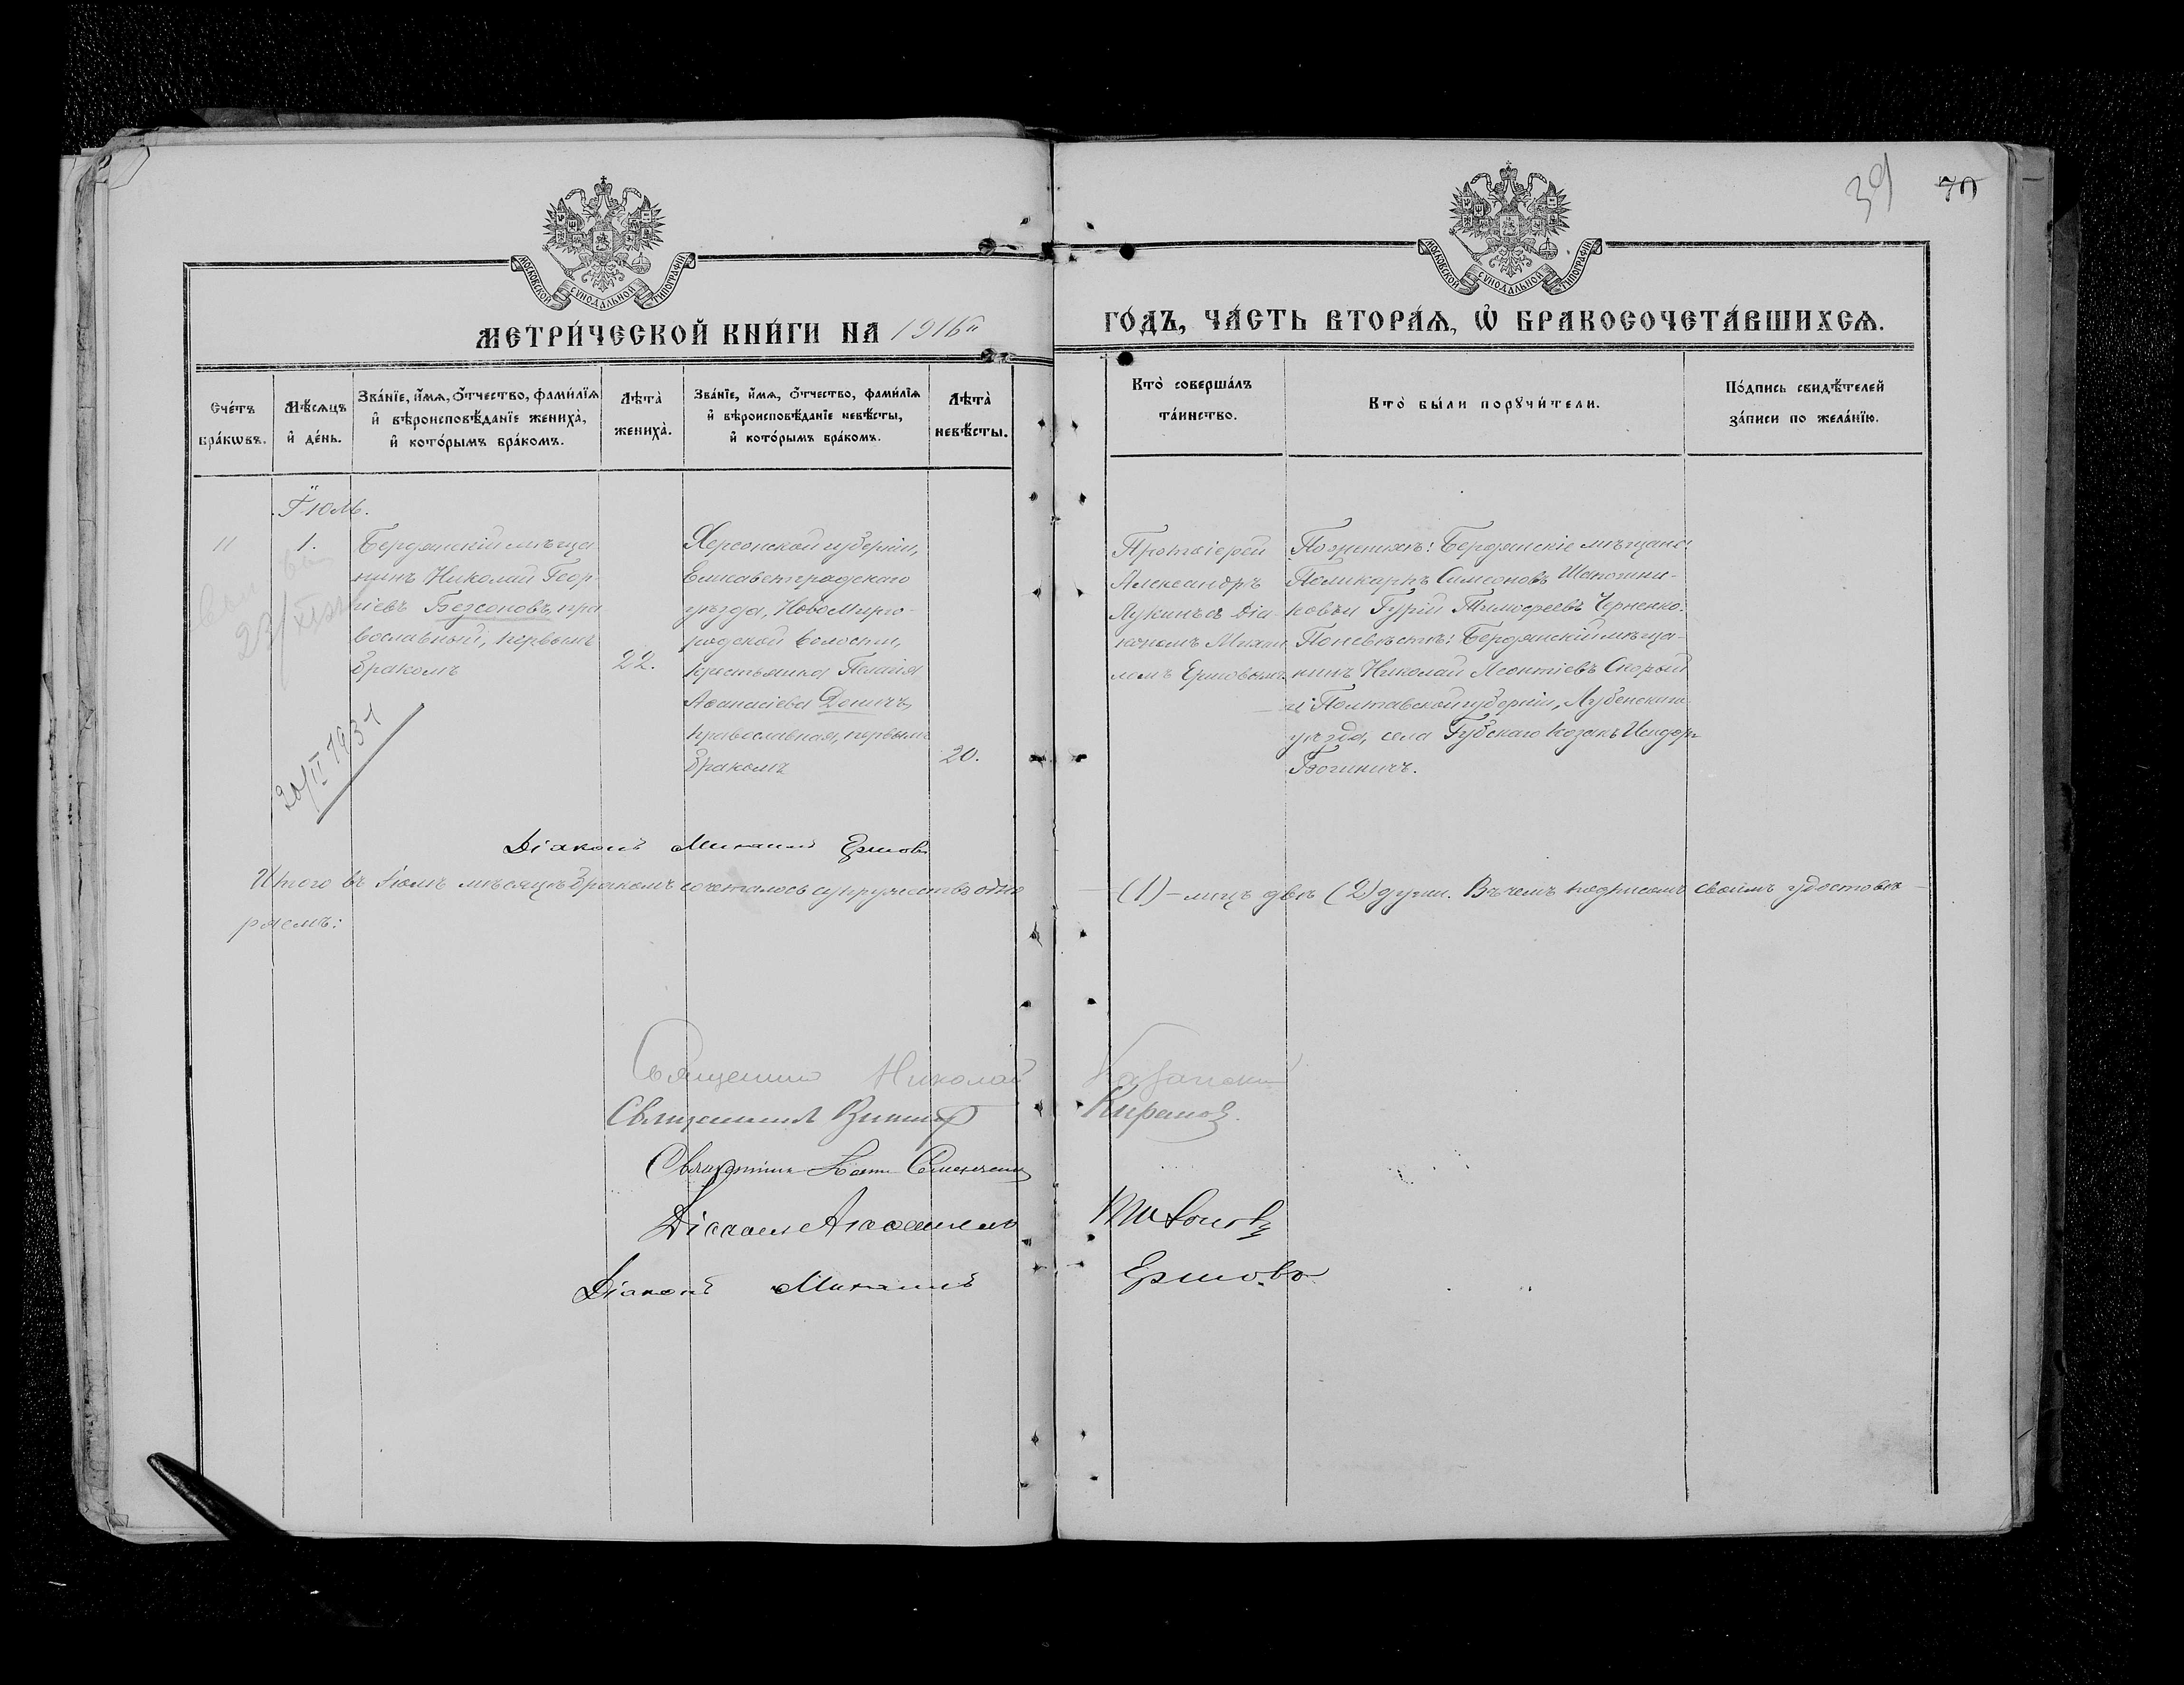 39 70
МОСКОВСКОЙ СѴНОДАЛЬНОЙ ТИПОГРАФІИ
МОСКОВСКОЙ СѴНОДАЛЬНОЙ ТИПОГРАФІИ
МЕТРИ́ЧЕСКОЙ КНИ́ГИ НА 1916й
ГО́ДЪ, ЧА́СТЬ ВТОРА́Ѧ, Ѽ БРАКОСОЧЕТА́ВШИХСѦ.
Сче́тъ бра́кѡвъ.
Мѣ́сяцъ и҆ де́нь.
Зва́нїе, и҆́мѧ, ѻ҆́тчество, фами́лїѧ и҆ вѣроисповѣ́данїе жениха̀, и҆ кото́рымъ бра́комъ.
Лѣта̀ жениха̀.
Зва́нїе, и҆́мѧ, ѻ҆́тчество, фами́лїѧ и҆ вѣроисповѣ́данїе невѣ́сты, и҆ кото́рымъ бра́комъ.
Лѣта̀ невѣ́сты.
Кто̀ соверша́лъ та́инство.
Кто̀ бы́ли порꙋчи́тели.
По́дпись свидѣ́телей за́писи по жела́нїю.
Іюль.
11
1.
Бердянскій мѣща-
нинъ Николай Геор-
гіевъ Безсоновъ, пра
вославный, первымъ
бракомъ
22.
Херсонской губерніи,
Елисаветградскаго
уѣзда, НовоМирго-
родской волости,
крестьянка Пелагія
Аѳанасіева Доничъ,
православная, первымъ
бракомъ
20.
Протоіерей
Александръ
Лукинъ съ Діа-
кономъ Михаи
ломъ Ершовымъ
По женихѣ: Бердянскіе мѣщане:
Поликарпъ Симеоновъ Шапошни-
ковъ и Гурій Тимоѳеевъ Черненко.
По невѣстѣ: Бердянскій мѣща-
нинъ Николай Леонтіевъ Скорый
и Полтавской губерніи, Лубенскаго
уѣзда, села Губскаго козакъ Исидоръ
20/II 1931
Діаконъ Михаилъ Ершовъ
Итого въ Іюлѣ мѣсяцѣ бракомъ сочеталось супружествъ одно (1) - лицъ двѣ (2) души. Въ чемъ подписомъ своимъ удостовѣ-
ряемъ:
Священникъ Николай Казанскій
Священникъ Кирановъ.
Священникъ
Діаконъ
Діаконъ Михаилъ Ершовъ